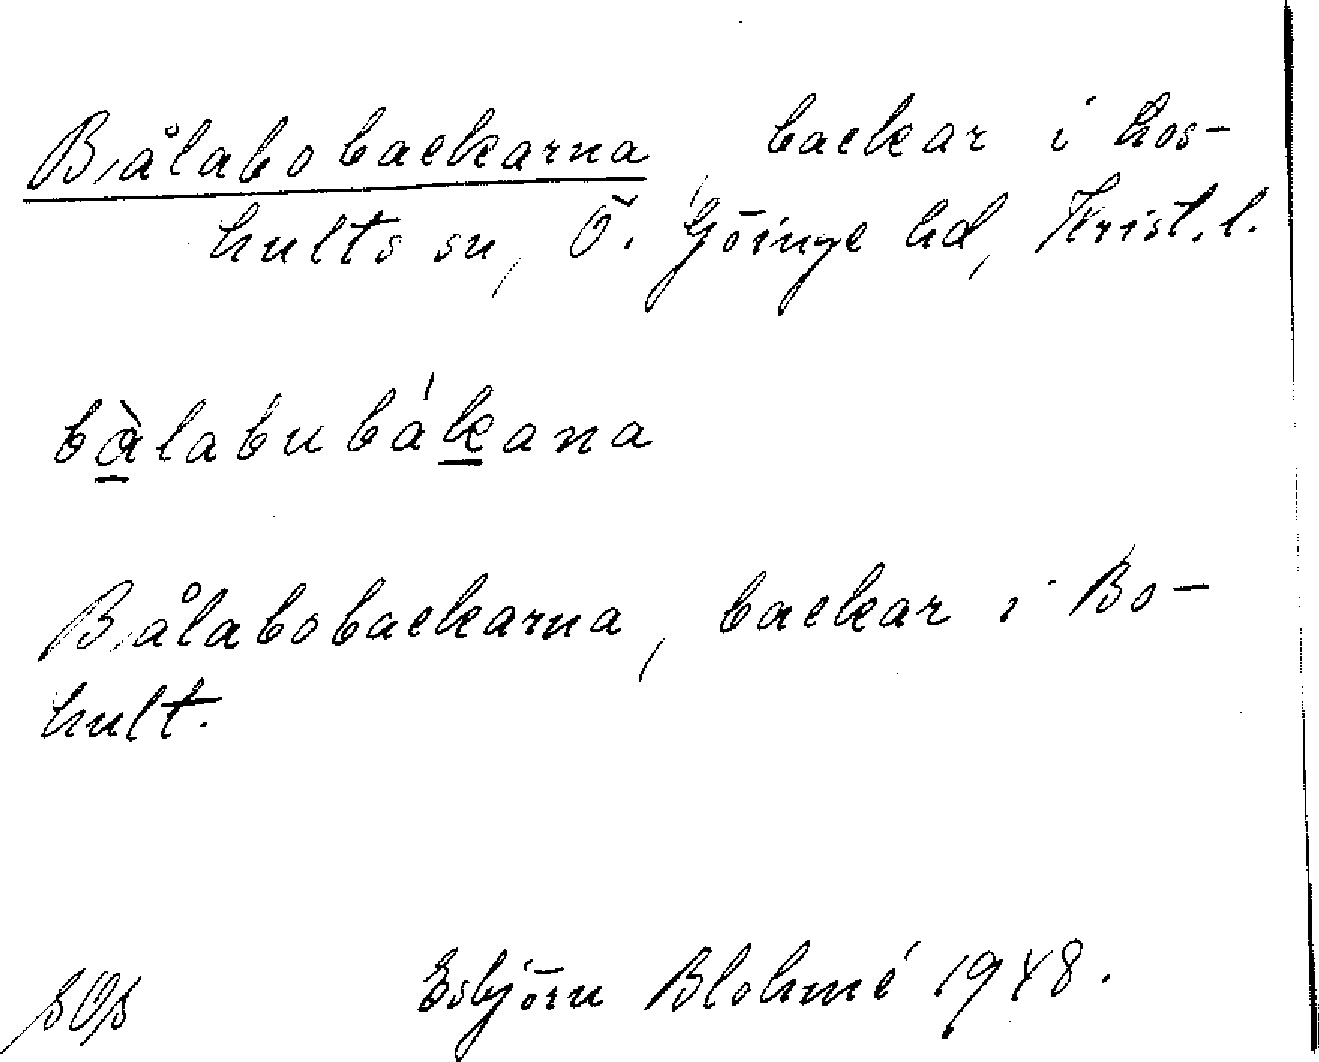 Bålabobackarna, backar i Los-
hults sn, Ö. Göinge hd, Krist. l.
bàlabubákana
Bålabobackarna, backar i Bo-
hult.
Esbjörn Blohmé 1948.